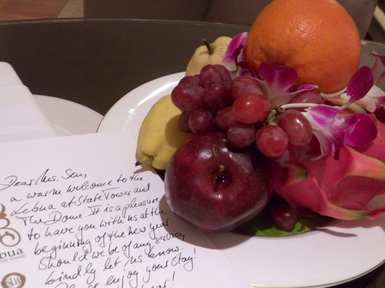 Dear Mrs. Sen,
a warm welcome to the
Lebua at State Tower and
The Dome. It is a pleasure
to have you with us at the
beginning of the new year.
Should we be of any
kindly let us know.
enjoy your stay!
bua